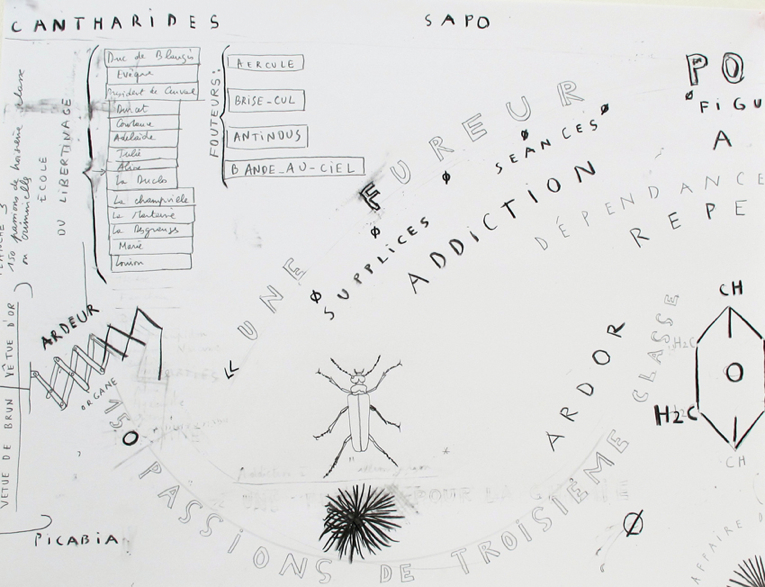 CANTHARIDES
SAPO
PO
FIGU
A
Duc de Blangis
Evêque
Président de Curval
Durcet
Constance
Adelaïde
Julie
Aline
La Duclos
La champville
La Martaine
La Desgranges
Marie
Louison
FOUTEURS:
AERCULE
BRISE-CUL
ANTINOUS
BANDE-AU-CIEL
ÉCOLE
DU LIBERTINAGE
150 passions de troisième classe
ou criminelles
« UNE FUREUR
Ø SUPPLICES Ø SEANCES Ø
ADDICTION
DÉPENDANCE
REPE
ARDEUR
ORGANE
VETUE DE BRUN
VÊTUE D'OR
PICABIA
150 PASSIONS DE TROISIEME CLASSE
ARDOR
CH
H2C
O
H2C
CH
Ø
AFFAIRE D